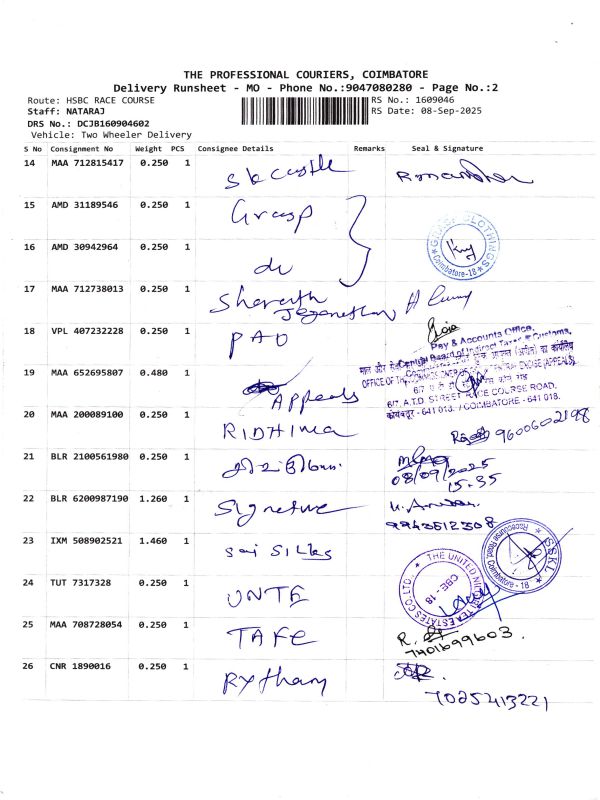 THE PROFESSIONAL COURIERS, COIMBATORE
Delivery Runsheet - MO - Phone No.:9047080280 - Page No.:2
Route: HSBC RACE COURSE
RS No.: 1609046
Staff: NATARAJ
RS Date: 08-Sep-2025
DRS No.: DCJB160904602
Vehicle: Two Wheeler Delivery
S No Consignment No Weight PCS Consignee Details Remarks Seal & Signature
14 MAA 712815417 0.250 1
15 AMD 31189546 0.250 1 Grasp
GRASP CLOTHINGS
Coimbatore-18
16 AMD 30942964 0.250 1 do
17 MAA 712738013 0.250 1 Sharath
Jeganathan
18 VPL 407232228 0.250 1 PAO
Pay & Accounts Office,
Central Board of Indirect Taxes & Customs,
19 MAA 652695807 0.480 1 Appeals
6/7, A.T.D. STREET RACE COURSE ROAD,
कोयंबटूर - 641 018. / COIMBATORE - 641 018.
20 MAA 200089100 0.250 1 RIDHIMA
9600602198
21 BLR 2100561980 0.250 1
08/09/2025
15.35
22 BLR 6200987190 1.260 1 Signature
9943512308
23 IXM 508902521 1.460 1 Sai SILKS
SSKL
Racecourse Road, Coimbatore - 18
24 TUT 7317328 0.250 1 UNTE
THE UNITED NILGIRI TEA ESTATES CO. LTD.
CBE - 18
25 MAA 708728054 0.250 1 TAFE
7401699603.
26 CNR 1890016 0.250 1 Rytham
7025413221